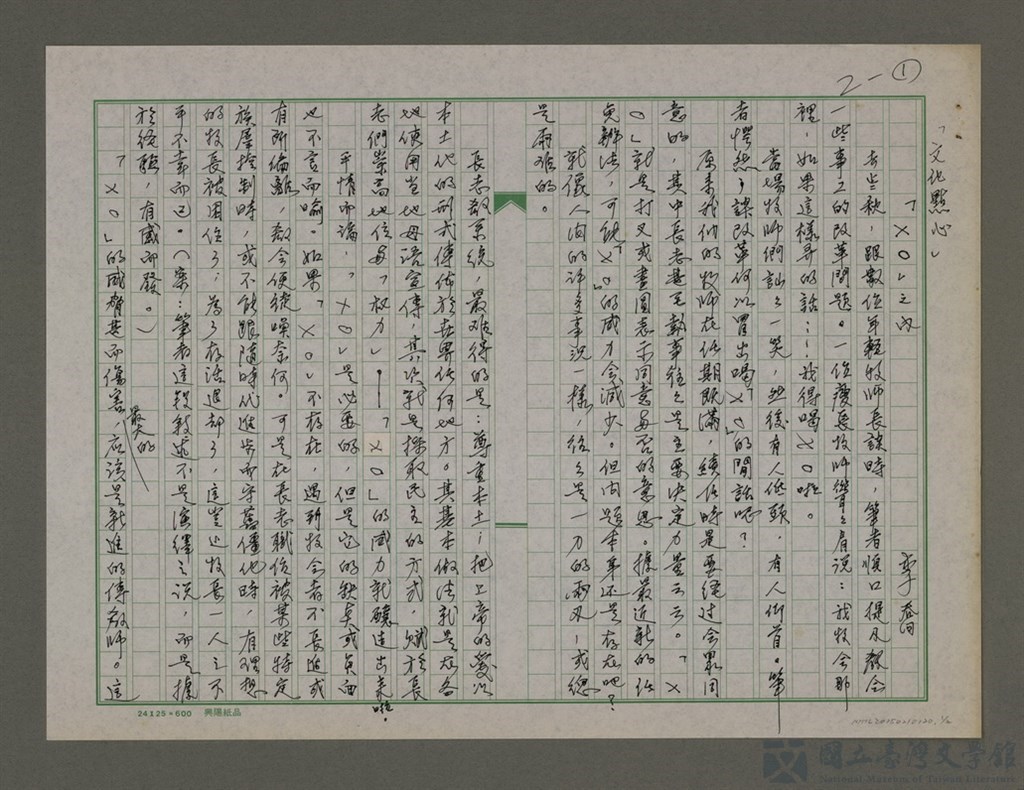 2-①
「文化點心」
「×○」之內
李喬
有些執，跟數位年輕牧師長談時，筆者順口提及教會
一些事工的改革問題。一位慶長牧師聳聳肩說：我牧會那
裡，如果這樣弄的話……我得喝×○啦。
當場牧師們訕訕一笑，然後有人低頭，有人仰首。筆
者愕然，談改革何以冒出喝「×○」的閒話呢？
原來我們的牧師在任期既滿，續任時是要經过会眾同
意的，其中長老甚至執事往往是主要決定力量云云。「×
○」就是打叉或畫圓表示同意與否的意思。據最近新的任
免辦法，可能「×○」的威力会減少。但问題本身还是存在吧？
就儂人间的许多事況一樣，往往是一刀的兩刃，或總
是兩难的。
長老教系統，最难得的是：尊重本土；把上帝的愛以
本土化的形式傳佈於世界任何地方。其基本做法就是在各
地使用當地母語宣傳，其次就是採取民主的方式，赋於長
老們崇高地位與「权力」——「×○」的威力就釀造出來啦。
平情而論，「×○」是必要的，但是它的缺失或負面
也不言而喻。如果「×○」不存在，遇到牧会者不長進或
有所偏離，教会便徒嘆奈何。可是在長老職位被某些特定
族群控制時，或不能跟隨時代進步而守舊僵化時，有理想
的牧長被困住了；為了存活退却了，這豈止牧長一人之不
平不幸而已。（案：筆者這段叙述不是演繹之說，而是據
於经驗，有感而發。）
「×○」的威脅甚而傷害，最大的应该是新進的傳教師。這
24125×600 興陽紙品
NMTL20150210120, 1/2
國立臺灣文學館
National Museum of Taiwan Literature